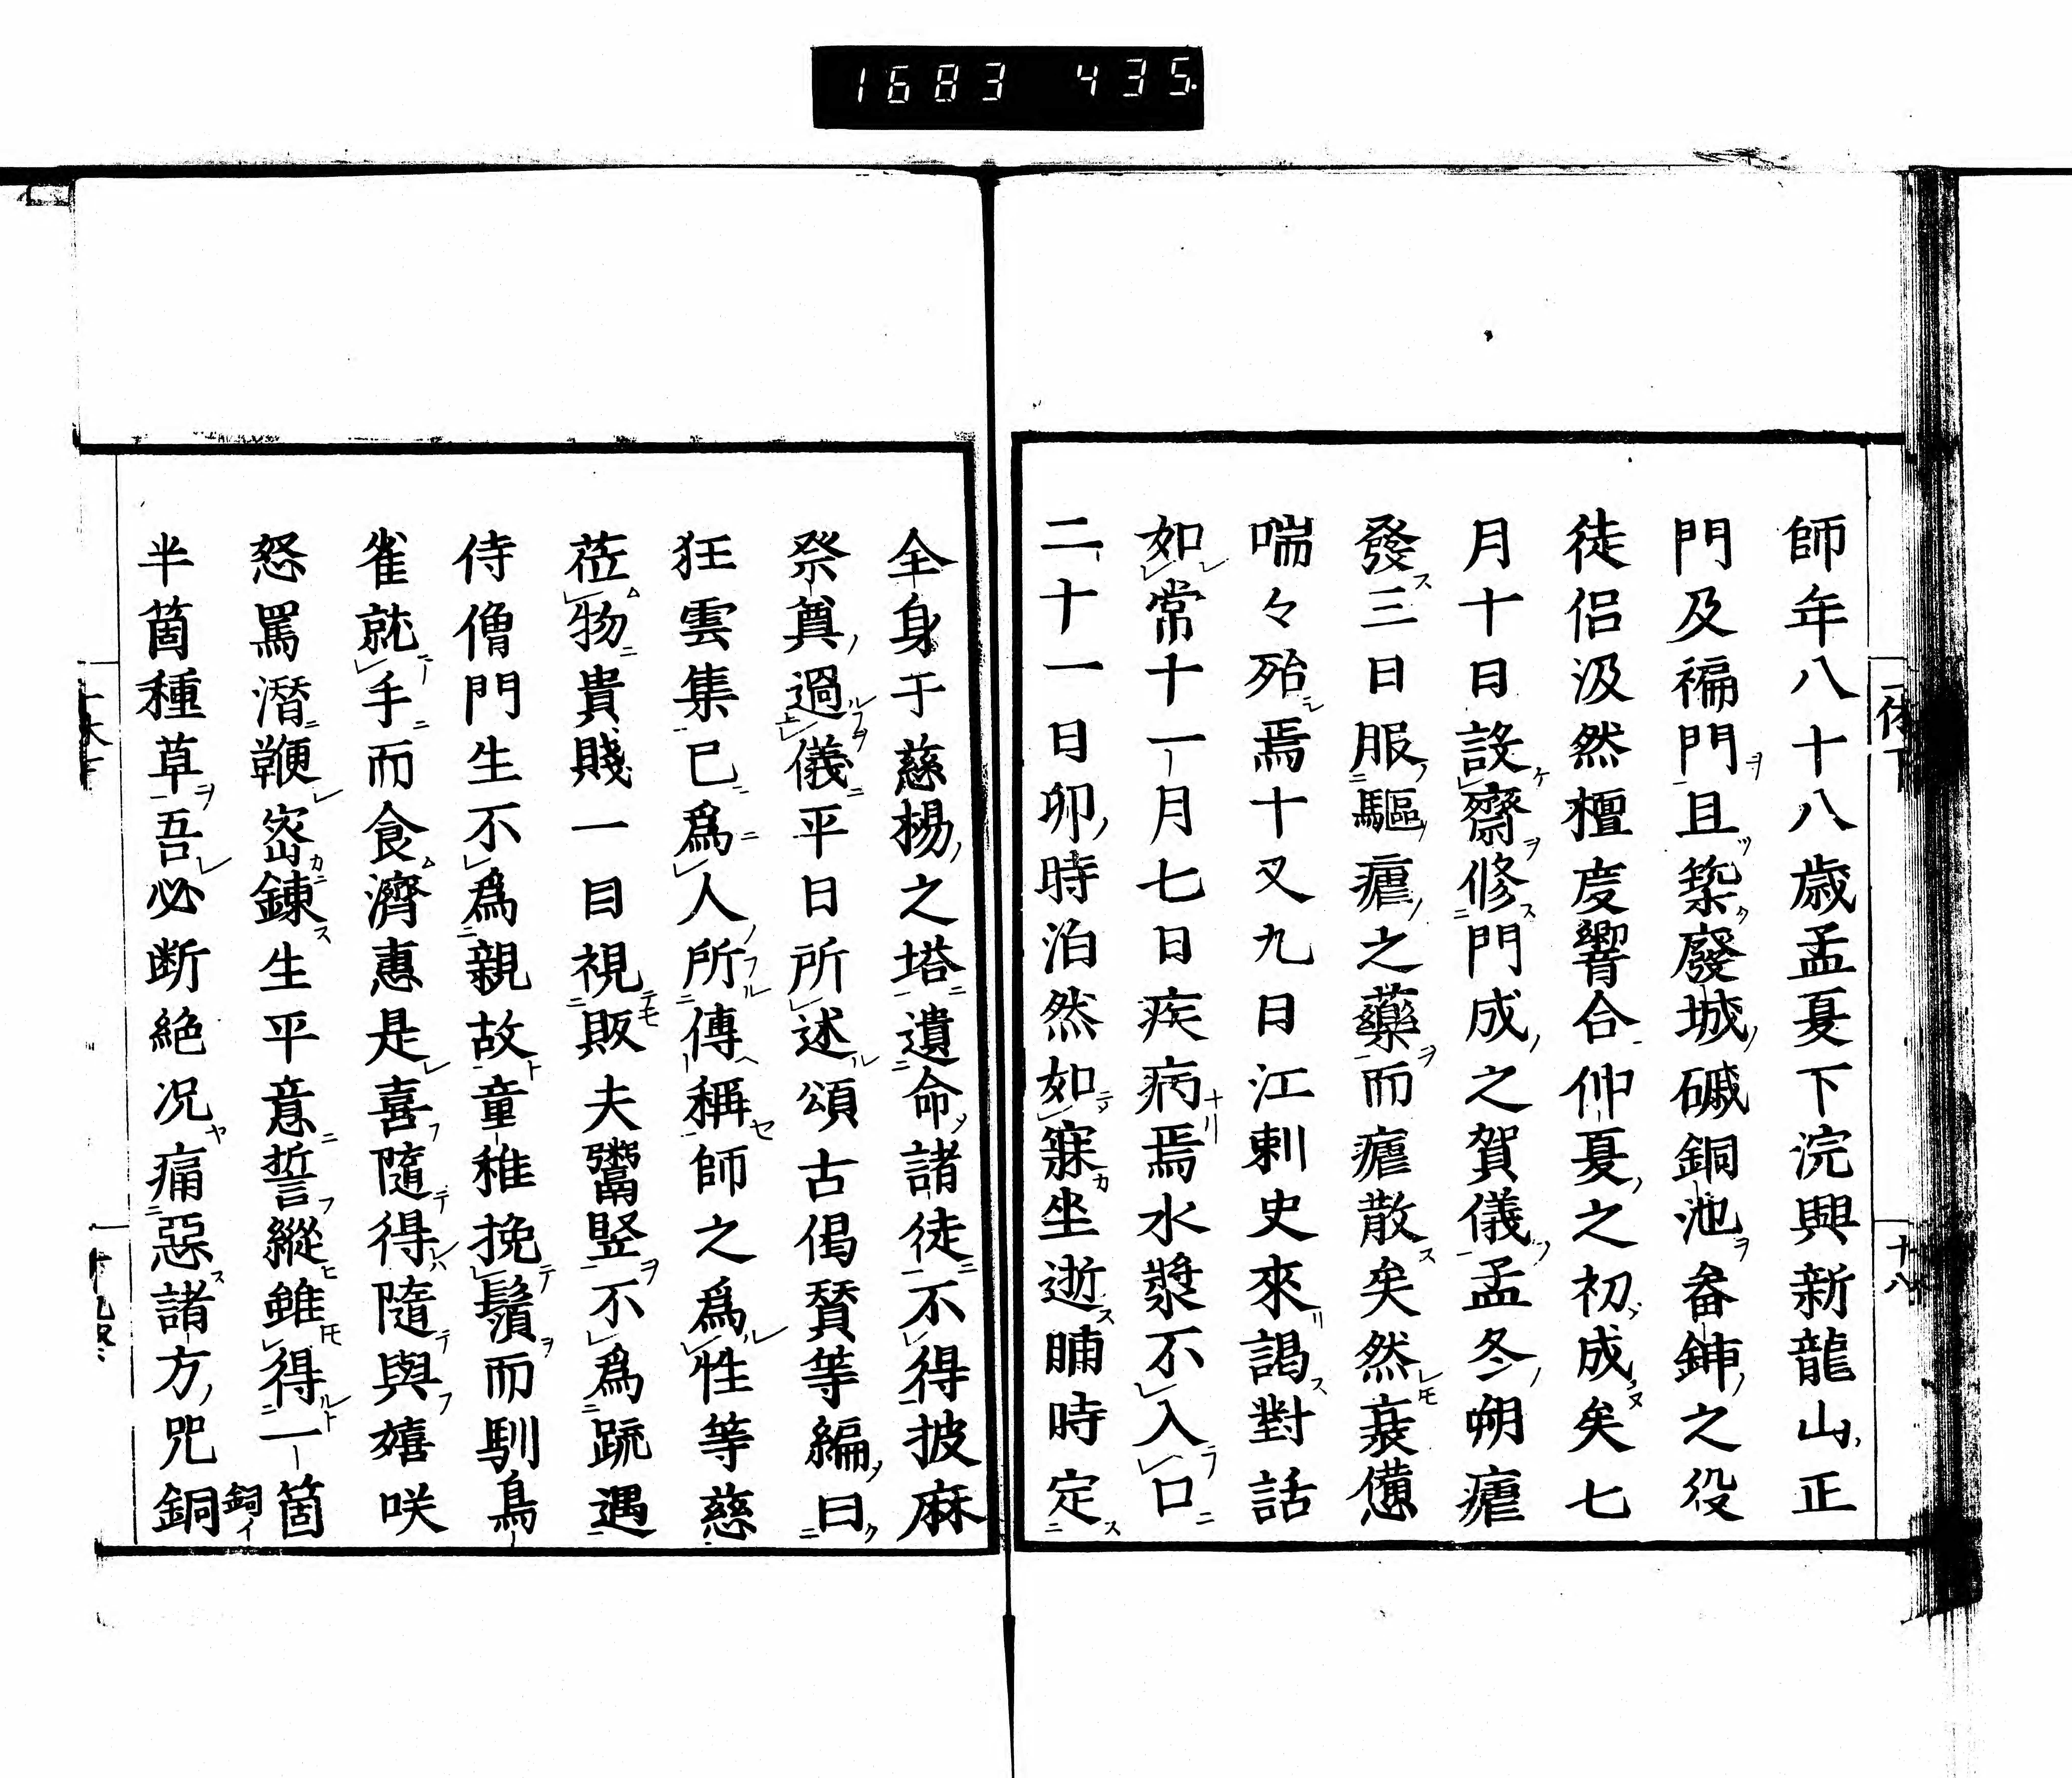 1683 435.
師年八十八歳孟夏下浣興新龍山正
門及褊門且築廢城磩銅池畚鍤之役
徒侶汲然檀度響合仲夏之初成矣七
月十日設齋修門成之賀儀孟冬朔瘧
發三日服驅瘧之藥而瘧散矣然衰憊
喘々殆焉十又九日江刺史來謁對話
如常十一月七日疾病焉水漿不入口
二十一日卯時泊然如寐坐逝晡時定
十八
全身于慈楊之塔遺命諸徒不得披麻
祭奠過儀平日所述頌古偈賛等編曰
狂雲集已爲人所傳稱師之爲性等慈
莅物貴賤一目視販夫鬻竪不爲踈遇
侍僧門生不爲親故童稚挽鬚而馴鳥
雀就手而食濟惠是喜隨得隨與嬉咲
怒罵潛鞭密錬生平意誓縱雖得一箇
半箇種草吾必断絶况痛惡諸方咒銅
鉰イ